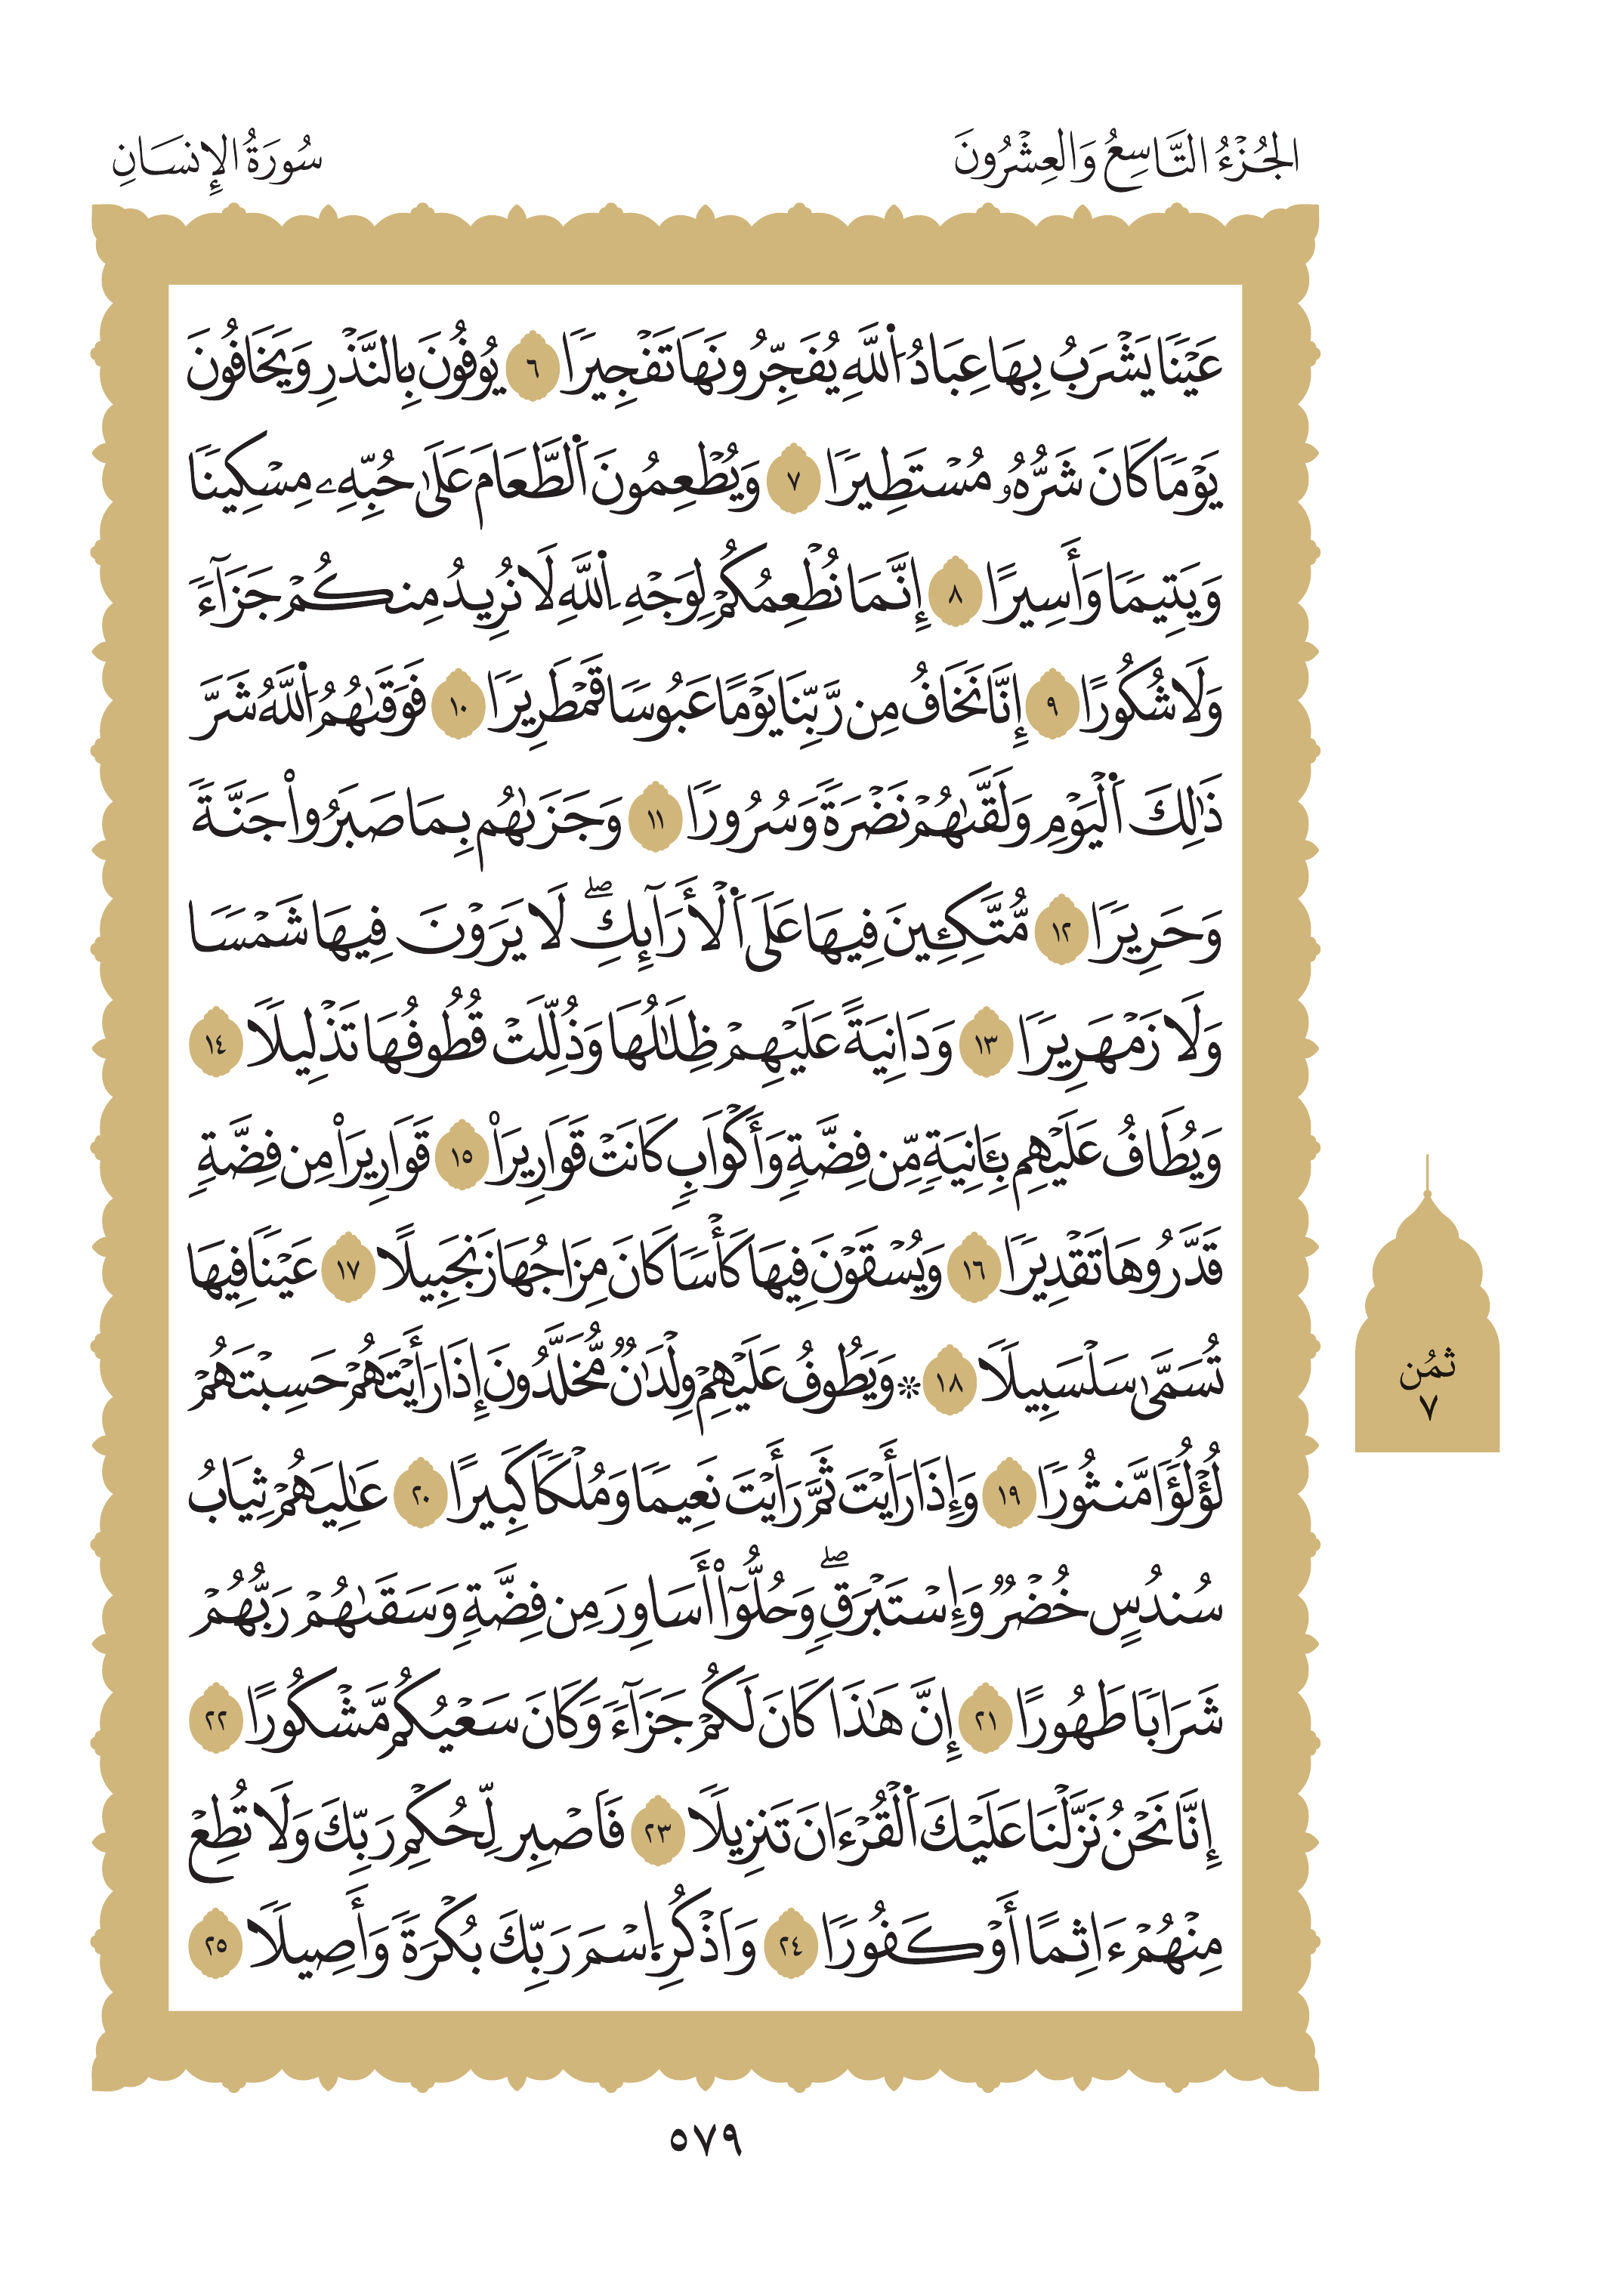 الجُزْءُ التَّاسِعُ وَالعِشْرُونَ
سُورَةُ الإِنسَانِ
عَيْنًا يَشْرَبُ بِهَا عِبَادُ اُ۬للَّهِ يُفَجِّرُونَهَا تَفْجِيرًا ٦ يُوفُونَ بِالنَّذْرِ وَيَخَافُونَ
يَوْمًا كَانَ شَرُّهُۥ مُسْتَطِيرًا ٧ وَيُطْعِمُونَ اَ۬لطَّعَامَ عَلَىٰ حُبِّهِۦ مِسْكِينًا
وَيَتِيمًا وَأَسِيرًا ٨ إِنَّمَا نُطْعِمُكُمْ لِوَجْهِ اِ۬للَّهِ لَا نُرِيدُ مِنكُمْ جَزَآءً
وَلَا شُكُورًا ٩ إِنَّا نَخَافُ مِن رَّبِّنَا يَوْمًا عَبُوسًا قَمْطَرِيرًا ١٠ فَوَقَىٰهُمُ اُ۬للَّهُ شَرَّ
ذَٰلِكَ اَ۬لْيَوْمِ وَلَقَّىٰهُمْ نَضْرَةً وَسُرُورًا ١١ وَجَزَىٰهُم بِمَا صَبَرُواْ جَنَّةً
وَحَرِيرًا ١٢ مُّتَّكِـِٔينَ فِيهَا عَلَى اَ۬لْأَرَآئِكِۖ لَا يَرَوْنَ فِيهَا شَمْسًا
وَلَا زَمْهَرِيرًا ١٣ وَدَانِيَةً عَلَيْهِمْ ظِلَٰلُهَا وَذُلِّلَتْ قُطُوفُهَا تَذْلِيلًا ١٤
وَيُطَافُ عَلَيْهِم بِـَٔانِيَةٍ مِّن فِضَّةٍ وَأَكْوَابٍ كَانَتْ قَوَارِيرَاْ ١٥ قَوَارِيرَاْ مِن فِضَّةٍ
قَدَّرُوهَا تَقْدِيرًا ١٦ وَيُسْقَوْنَ فِيهَا كَأْسًا كَانَ مِزَاجُهَا زَنجَبِيلًا ١٧ عَيْنًا فِيهَا
تُسَمَّىٰ سَلْسَبِيلًا ١٨ ۞ وَيَطُوفُ عَلَيْهِمْ وِلْدَٰنٌ مُّخَلَّدُونَ إِذَا رَأَيْتَهُمْ حَسِبْتَهُمْ
لُؤْلُؤًا مَّنثُورًا ١٩ وَإِذَا رَأَيْتَ ثَمَّ رَأَيْتَ نَعِيمًا وَمُلْكًا كَبِيرًا ٢٠ عَٰلِيَهُمْ ثِيَابُ
سُندُسٍ خُضْرٌ وَإِسْتَبْرَقٍۖ وَحُلُّوٓاْ أَسَاوِرَ مِن فِضَّةٍ وَسَقَىٰهُمْ رَبُّهُمْ
شَرَابًا طَهُورًا ٢١ إِنَّ هَٰذَا كَانَ لَكُمْ جَزَآءً وَكَانَ سَعْيُكُم مَّشْكُورًا ٢٢
إِنَّا نَحْنُ نَزَّلْنَا عَلَيْكَ اَ۬لْقُرْءَانَ تَنزِيلًا ٢٣ فَاصْبِر لِّحُكْمِ رَبِّكَ وَلَا تُطِعْ
مِنْهُمْ ءَاثِمًا أَوْ كَفُورًا ٢٤ وَاَذْكُرِ اِ۪سْمَ رَبِّكَ بُكْرَةً وَأَصِيلًا ٢٥
ثُمُن
٧
٥٧٩